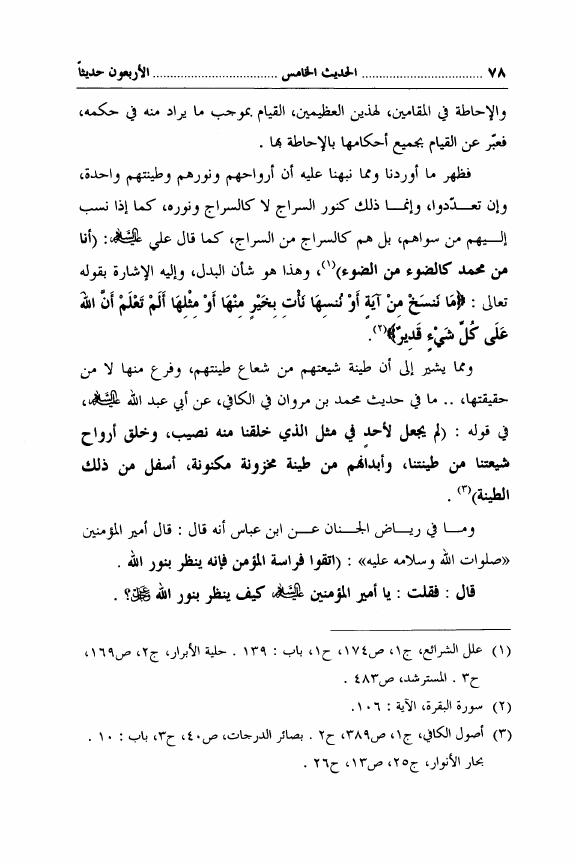 ٧٨ ................................ الحديث الخامس ................................ الأربعون حديثاً
والإحاطة في المقامين، لهذين العظيمين، القيام بموجب ما يراد منه في حكمه،
فعبّر عن القيام بجميع أحكامها بالإحاطة بها .
فظهر ما أوردنا ومما نبهنا عليه أن أرواحهم ونورهم وطينتهم واحدة،
وإن تعـدّدوا، وإنمـا ذلك كنور السراج لا كالسراج ونوره، كما إذا نسب
إلـيهم من سواهم، بل هم كالسراج من السراج، كما قال علي عليه السلام: (أنا
من محمد كالضوء من الضوء)(١)، وهذا هو شأن البدل، وإليه الإشارة بقوله
تعالى : ﴿مَا نَنسَخْ مِنْ آيَةٍ أَوْ نُنسِهَا نَأْتِ بِخَيْرٍ مِنْهَا أَوْ مِثْلِهَا أَلَمْ تَعْلَمْ أَنَّ اللَّهَ
عَلَى كُلِّ شَيْءٍ قَدِيرٌ﴾(٢).
ومما يشير إلى أن طينة شيعتهم من شعاع طينتهم، وفرع منها لا من
حقيقتها، .. ما في حديث محمد بن مروان في الكافي، عن أبي عبد الله عليه السلام،
في قوله : (لم يجعل لأحدٍ في مثل الذي خلقنا منه نصيب، وخلق أرواح
شيعتنا من طينتنا، وأبدانهم من طينة مخزونة مكنونة، أسفل من ذلك
الطينة)(٣) .
ومـا في ريـاض الجـنان عـن ابن عباس أنه قال : قال أمير المؤمنين
«صلوات الله وسلامه عليه» : (اتقوا فراسة المؤمن فإنه ينظر بنور الله .
قال : فقلت : يا أمير المؤمنين عليه السلام كيف ينظر بنور الله ؟ .
(١) علل الشرائع، ج١، ص١٧٤، ح١، باب : ١٣٩ . حلية الأبرار، ج٢، ص١٦٩،
ح٣ . المسترشد، ص٤٨٣ .
(٢) سورة البقرة، الآية : ١٠٦.
(٣) أصول الكافي، ج١، ص٣٨٩، ح٢ . بصائر الدرجات، ص٤٠، ح٣، باب : ١٠ .
بحار الأنوار، ج٢٥، ص١٣، ح٢٦ .